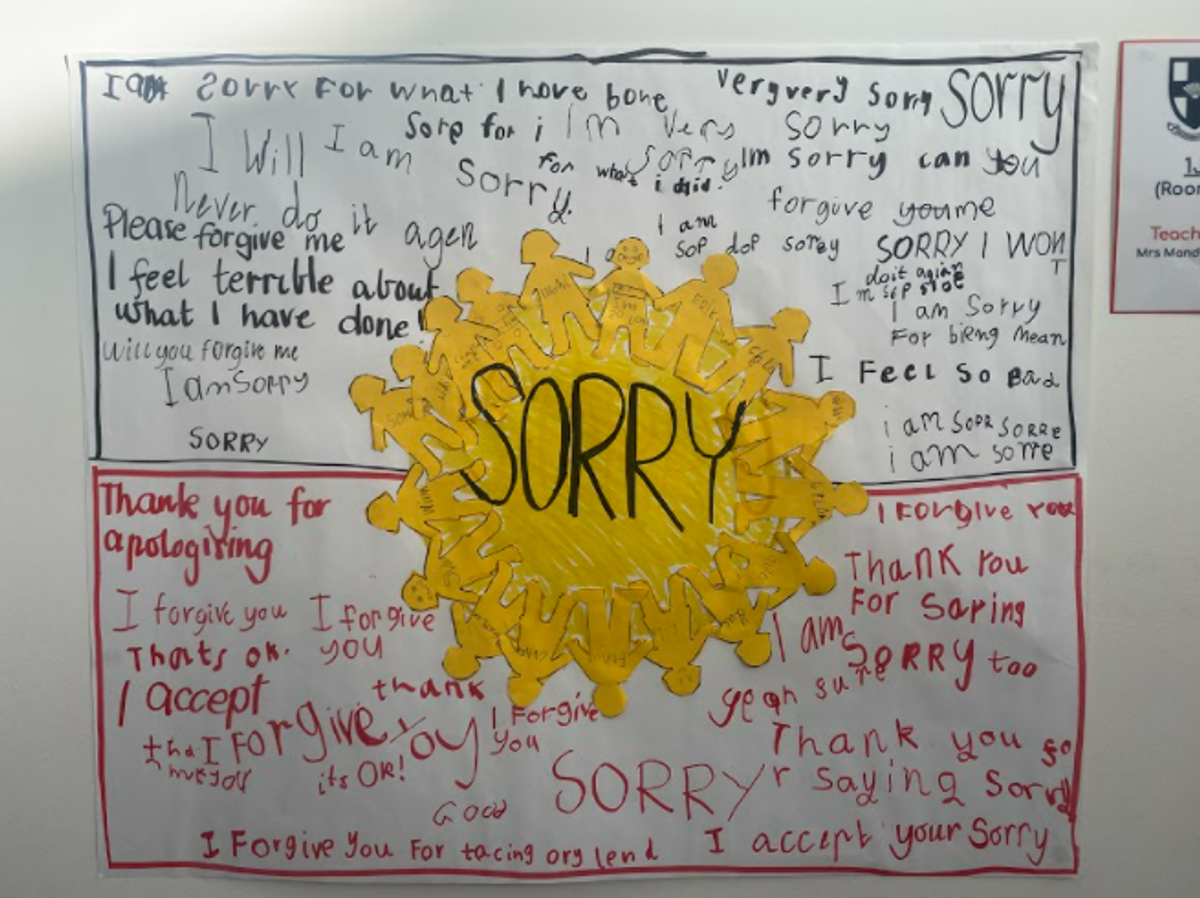 I am sorry For what I have bone
very very sorry
SORRY
I Will
Never do it agen
I am
sorry.
Sorp for i
for what i did.
I'm Vers sorry
sorry
Im sorry can you
forgive youme
Please forgive me
I feel terrible about
what I have done!
Will you forgive me
I am Sorry
SORRY
I am
sop dop sorey
SORRY I WON
T
doit agian
I m
I am Sorry
For bieng mean
I FEEL So Bad
i am SOPR SORRE
i am sorre
SORRY
Thank you for
apologiting
I forgive you
I forgive
you
Thats ok.
I accept
thank
I FOrgive yoy
I Forgive
you
its OK!
Good
SORRY
I Forgive you For tacing org lend
I Forgive you
Thank you
For Saring
I am SORRY too
yeah sure
Thank you so
r saying Sorry
I accept your Sorry
Teach